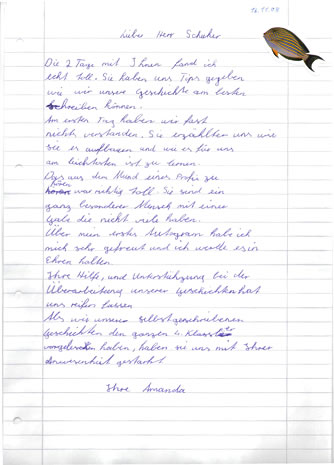 16.11.09
Lieber Herr Schuher
Die 2 Tage mit Ihnen fand ich
echt toll. Sie haben uns Tips gegeben
wie wir unsere Geschichte am besten
schreiben können.
Am ersten Tag haben wir fast
nichts verstanden. Sie erzählten uns wie
sie es auffassen und wo es für uns
am leichtesten ist zu lernen.
Das aus den Mund eines Profis zu
hören war richtig toll. Sie sind ein
ganz besonderer Mensch mit einer
Gabe die nicht viele haben.
Über mein erstes Autogram hab ich
mich sehr gefreut und ich werde es in
Ehren halten.
Ihre Hilfe, und Unterstützung bei der
Überarbeitung unserer Geschichten hat
uns reifen lassen
Als wir unsere selbstgeschriebenen
Geschichten den ganzen 4. Klassen
vorgelesen haben, haben sie uns mit Ihrer
Anwesenheit gestärkt
Ihre Amanda